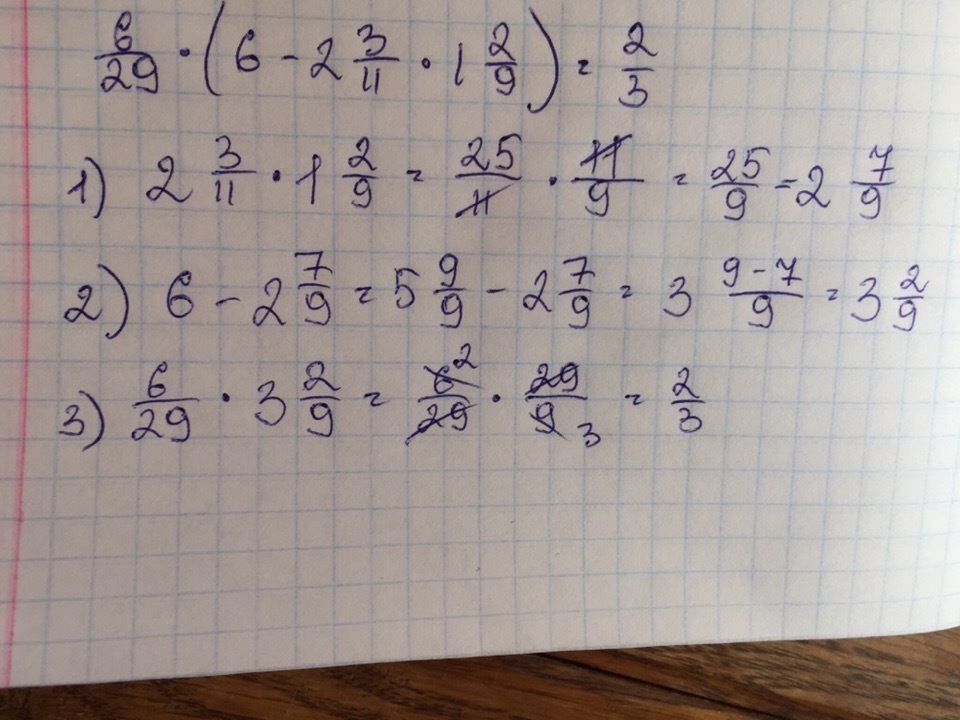 6/29 · (6 - 2 3/11 · 1 2/9) = 2/3
1) 2 3/11 · 1 2/9 = 25/11 · 11/9 = 25/9 = 2 7/9
2) 6 - 2 7/9 = 5 9/9 - 2 7/9 = 3 (9-7)/9 = 3 2/9
3) 6/29 · 3 2/9 = 6 2/29 · 29/9 3 = 2/3